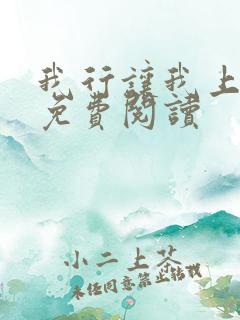 我行讓我上
免費閱讀
小二上茶
未经同意禁止转载